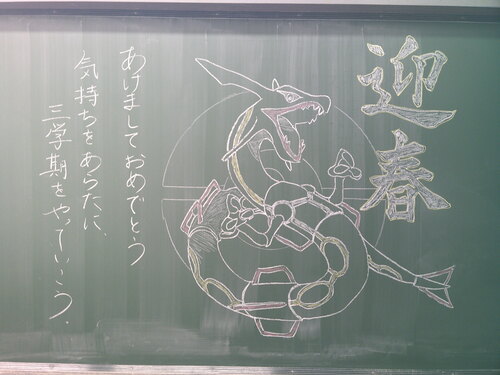 迎春
あけましておめでとう
気持ちをあらたに、
三学期をやっていこう。